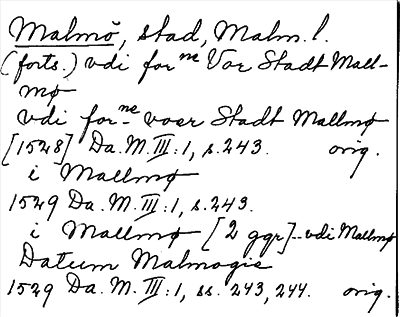 Malmö, stad, Malm. l.
(forts.) vdi for ne Vor Stadt Mall-
mø
vdi for ne voer Stadt Mallmø
[1528] Da. M. III:1, s. 243. orig.
i Mallmø
1529 Da. M. III:1, s. 243.
i Mallmø [2 ggr] - vdi Mallmø
Datum Malmogie
1529 Da. M. III:1, ss. 243, 244. orig.